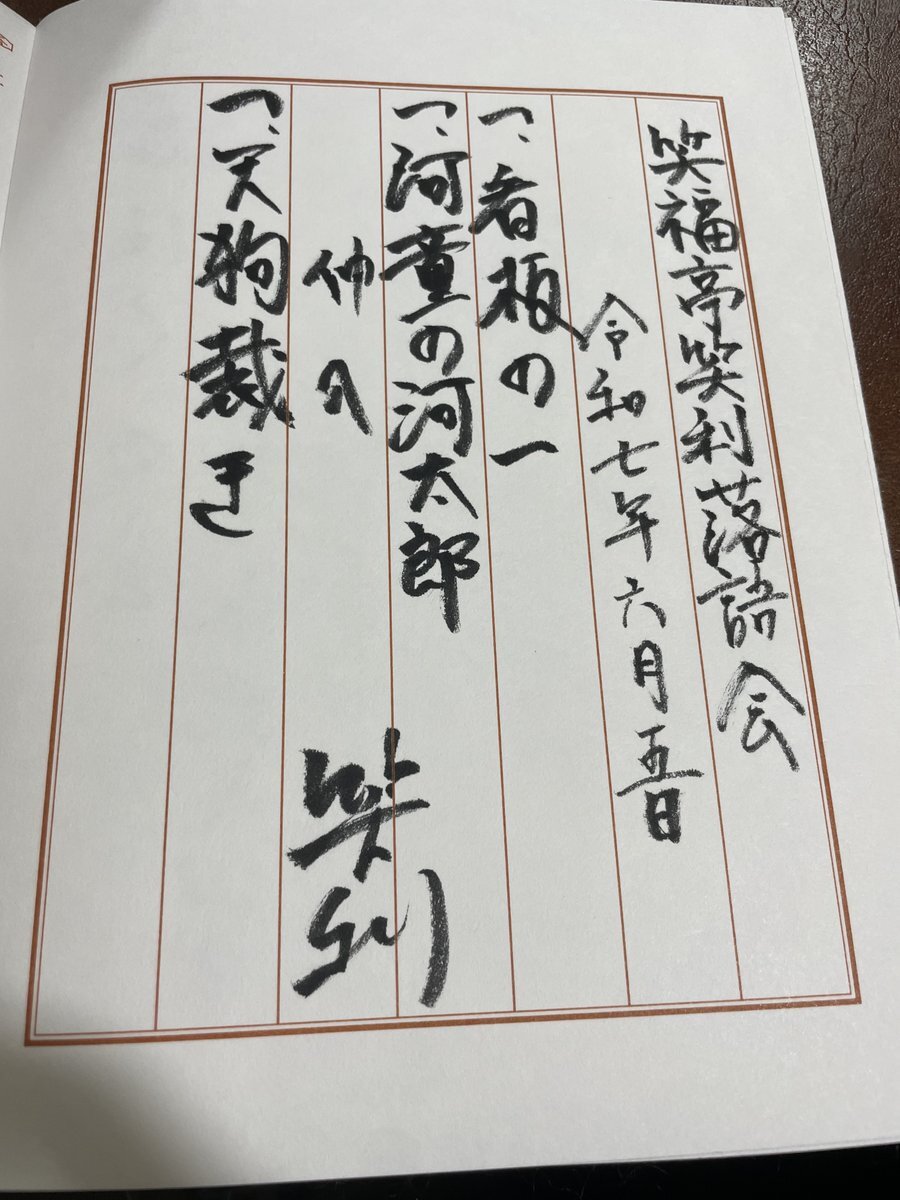 笑福亭笑利落語会
令和七年六月五日
一、看板の一
一、河童の河太郎
仲入
一、天狗裁き
笑利